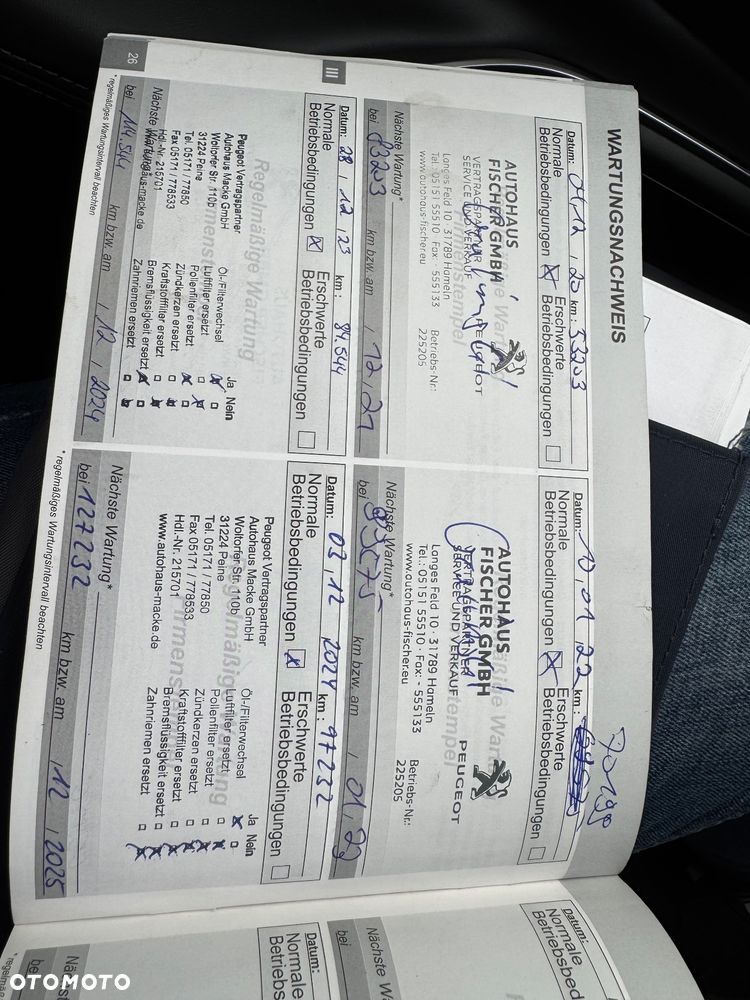 WARTUNGSNACHWEIS
Datum: 01, 12, 20 km: 53203
Normale Betriebsbedingungen ☒ Erschwerte Betriebsbedingungen ☐
AUTOHAUS
FISCHER GMBH
VERTRAGSPARTNER
SERVICE UND VERKAUF
PEUGEOT
Langes Feld 10 · 31789 Hameln
Tel.: 05151 55510 · Fax: - 555133
www.autohaus-fischer.eu
Betriebs-Nr.:
225205
Nächste Wartung*
bei 83203 km bzw. am , 12, 21
Datum: 10, 01, 22 km:
Normale Betriebsbedingungen ☒ Erschwerte Betriebsbedingungen ☐
AUTOHAUS
FISCHER GMBH
VERTRAGSPARTNER
SERVICE UND VERKAUF
PEUGEOT
Langes Feld 10 · 31789 Hameln
Tel.: 05151 55510 · Fax: - 555133
www.autohaus-fischer.eu
Betriebs-Nr.:
225205
Nächste Wartung*
bei km bzw. am , 01, 23
III
Datum: 28, 12, 23 km: 84.544
Normale Betriebsbedingungen ☒ Erschwerte Betriebsbedingungen ☐
Regelmäßige Wartung
Peugeot Vertragspartner
Autohaus Macke GmbH
Woltorfer Str. 110b
31224 Peine
Tel. 05171 / 77850
Fax 05171 / 778533
Hdl.-Nr. 215701
Ja Nein
Öl-/Filterwechsel
Luftfilter ersetzt
Pollenfilter ersetzt
Zündkerzen ersetzt
Kraftstofffilter ersetzt
Bremsflüssigkeit ersetzt
Zahnriemen ersetzt
Nächste Wartung*
bei 114.544 km bzw. am , 12, 2024
* regelmäßiges Wartungsintervall beachten
26
Datum: 03, 12 2024 km: 97232
Normale Betriebsbedingungen ☒ Erschwerte Betriebsbedingungen ☐
Peugeot Vertragspartner
Autohaus Macke GmbH
Woltorfer Str. 110b
31224 Peine
Tel. 05171 / 77850
Fax 05171 / 778533
Hdl.-Nr. 215701
www.autohaus-macke.de
Ja Nein
Öl-/Filterwechsel
Luftfilter ersetzt
Pollenfilter ersetzt
Zündkerzen ersetzt
Kraftstofffilter ersetzt
Bremsflüssigkeit ersetzt
Zahnriemen ersetzt
Nächste Wartung*
bei 127232 km bzw. am , 12, 2025
* regelmäßiges Wartungsintervall beachten
Datum:
Normale
Betriebsbed
Nächste Wa
bei
Datum:
Normale
Betriebsbed
bei
OTOMOTO